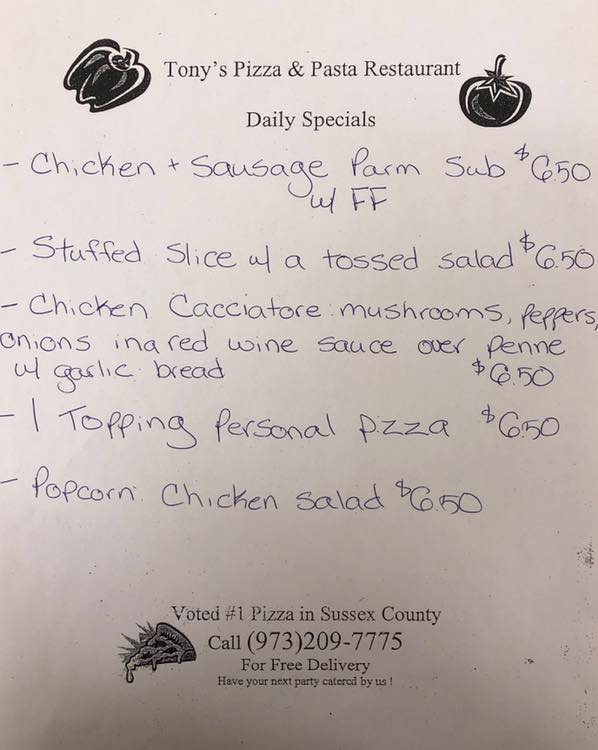 Tony's Pizza & Pasta Restaurant
Daily Specials
- Chicken + Sausage Parm Sub $6.50
w/ FF
- Stuffed Slice w/ a tossed salad $6.50
- Chicken Cacciatore: mushrooms, peppers,
onions in a red wine sauce over penne
w/ garlic bread $6.50
- 1 Topping Personal pizza $6.50
- Popcorn Chicken Salad $6.50
Voted #1 Pizza in Sussex County
Call (973)209-7775
For Free Delivery
Have your next party catered by us !